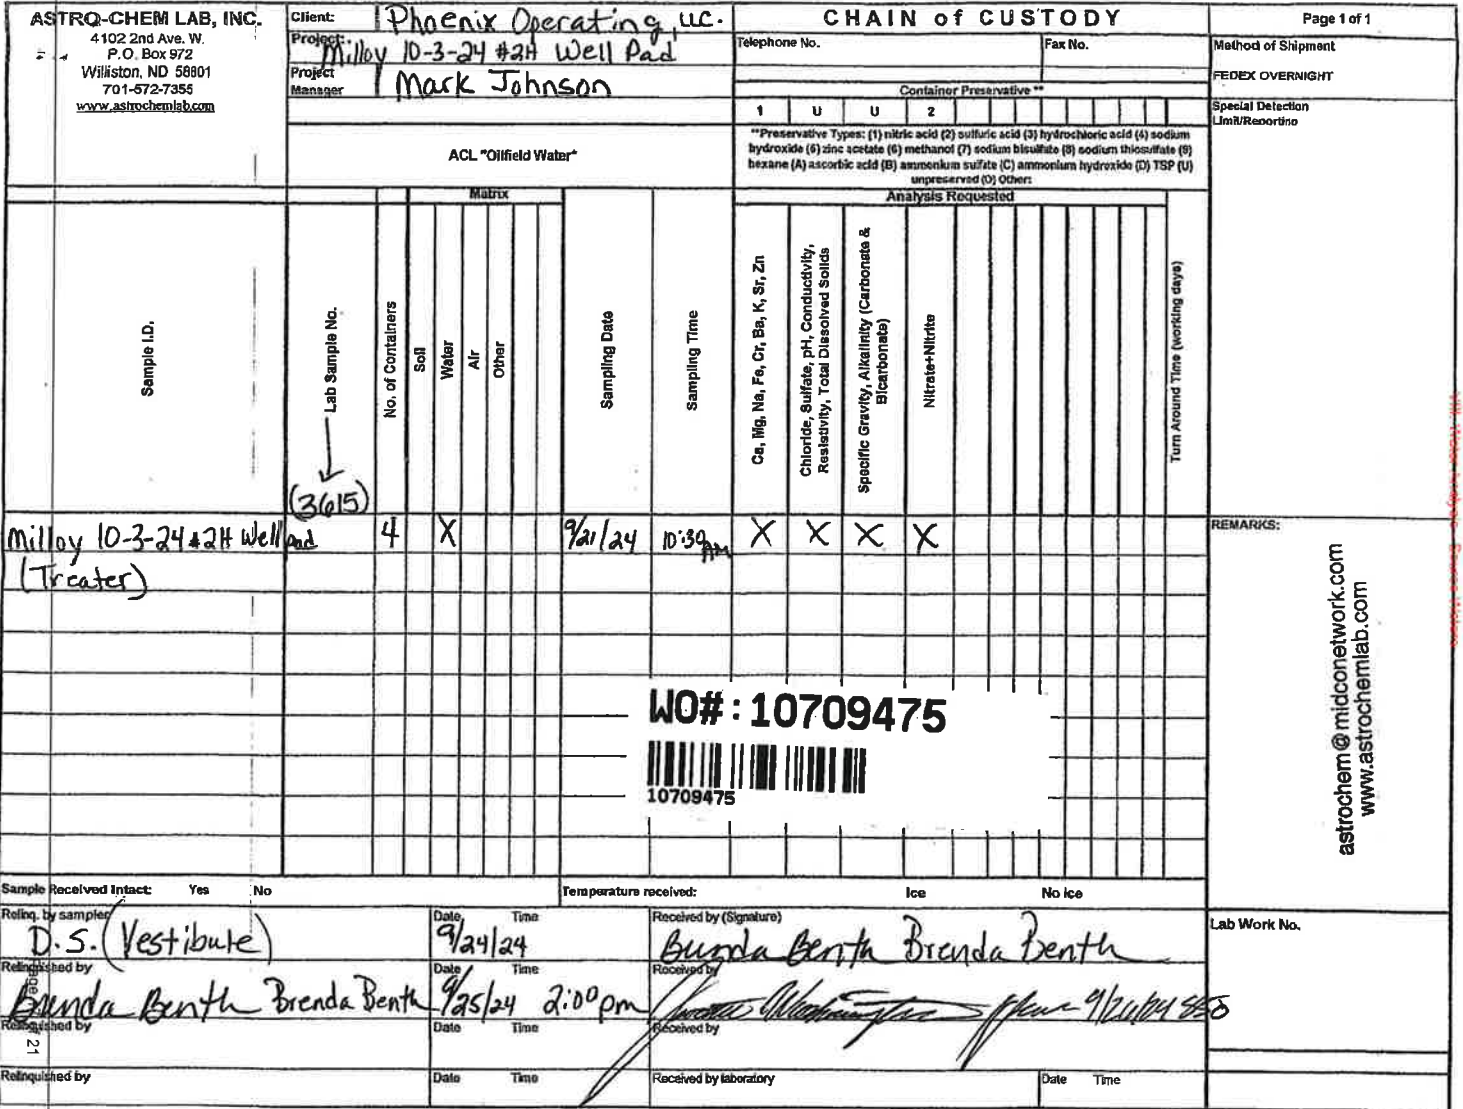 ASTRO-CHEM LAB, INC.
4102 2nd Ave. W.
P.O. Box 972
Williston, ND 58801
701-572-7355
www.astrochemlab.com
Client: Phoenix Operating, LLC.
Project: Milloy 10-3-24 #2H Well Pad
Project Manager Mark Johnson
ACL "Oilfield Water"
CHAIN of CUSTODY
Telephone No. Fax No.
Container Preservative **
1 U U 2
**Preservative Types: (1) nitric acid (2) sulfuric acid (3) hydrochloric acid (4) sodium
hydroxide (5) zinc acetate (6) methanol (7) sodium bisulfate (8) sodium thiosulfate (9)
hexane (A) ascorbic acid (B) ammonium sulfate (C) ammonium hydroxide (D) TSP (U)
unpreserved (O) Other:
Page 1 of 1
Method of Shipment
FEDEX OVERNIGHT
Special Detection
Limit/Reporting
Matrix
Analysis Requested
Sample I.D.
Lab Sample No.
(3615)
No. of Containers
Soil
Water
Air
Other
Sampling Date
Sampling Time
Ca, Mg, Na, Fe, Cr, Ba, K, Sr, Zn
Chloride, Sulfate, pH, Conductivity,
Resistivity, Total Dissolved Solids
Specific Gravity, Alkalinity (Carbonate &
Bicarbonate)
Nitrate+Nitrite
Turn Around Time (working days)
Milloy 10-3-24 #2H Well Pad 4 X 9/21/24 10:30 AM X X X X
(Treater)
REMARKS:
astrochem@midconetwork.com
www.astrochemlab.com
WO#: 10709475
10709475
Sample Received Intact: Yes No Temperature received: Ice No Ice
Relinq. by sampler Date Time Received by (Signature)
D.S. (Vestibule) 9/24/24 Brenda Benth Brenda Benth
Relinquished by Date Time Received by
Brenda Benth Brenda Benth 9/25/24 2:00 pm
Relinquished by Date Time Received by
Relinquished by Date Time Received by laboratory Date Time
Lab Work No.
21